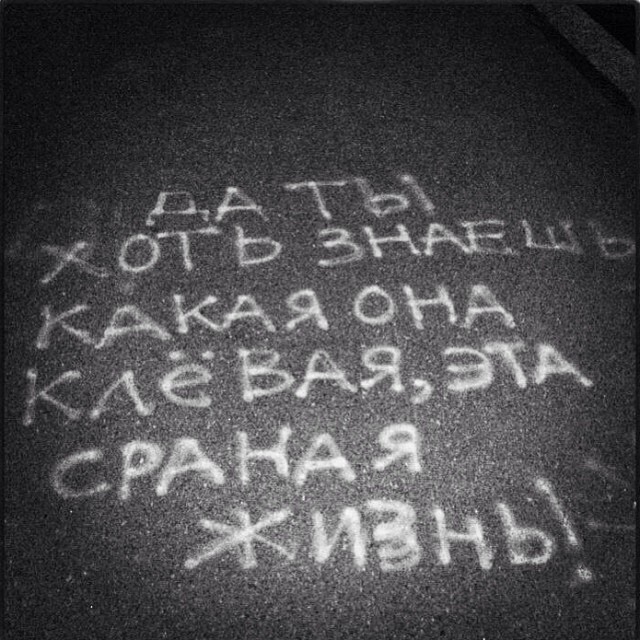 ДА ТЫ
ХОТЬ ЗНАЕШЬ
КАКАЯ ОНА
КЛЁВАЯ, ЭТА
СРАНАЯ
ЖИЗНЬ!